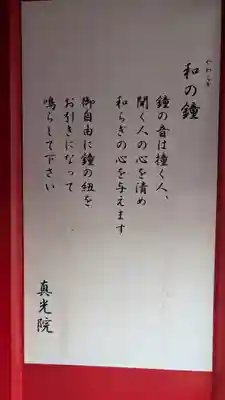 和の鐘
やわらぎ
鐘の音は撞く人、
聞く人の心を清め
和らぎの心を与えます
御自由に鐘の紐を
お引きになって
鳴らして下さい
真光院